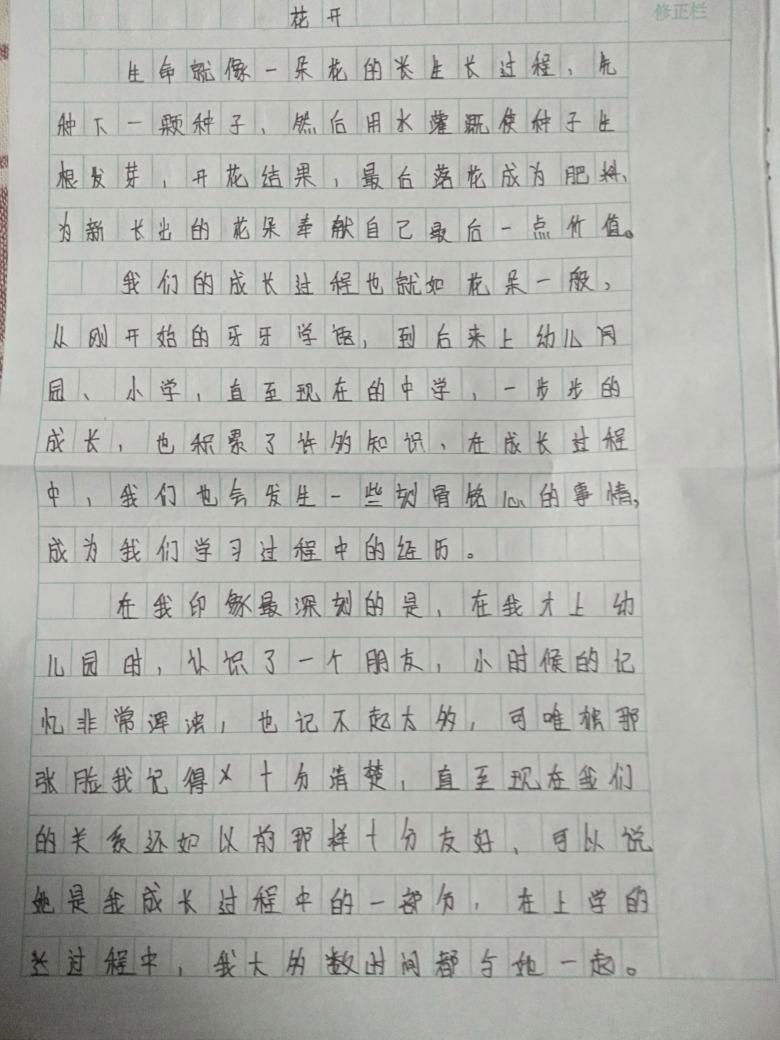 修正栏
花开
生命就像一朵花的长生长过程，先
种下一颗种子，然后用水灌溉使种子生
根发芽，开花结果，最后落花成为肥料，
为新长出的花朵奉献自己最后一点价值。
我们的成长过程也就如花朵一般，
从刚开始的牙牙学语，到后来上幼儿园
园、小学，直至现在的中学，一步步的
成长，也积累了许多知识、在成长过程
中，我们也会发生一些刻骨铭心的事情，
成为我们学习过程中的经历。
在我印象最深刻的是，在我才上幼
儿园时，认识了一个朋友，小时候的记
忆非常浑浊，也记不起太多，可唯独那
张脸我记得十分清楚，直至现在我们
的关系还如以前那样十分友好、可以说
她是我成长过程中的一部分，在上学的
过程中，我大多数时间都与她一起。